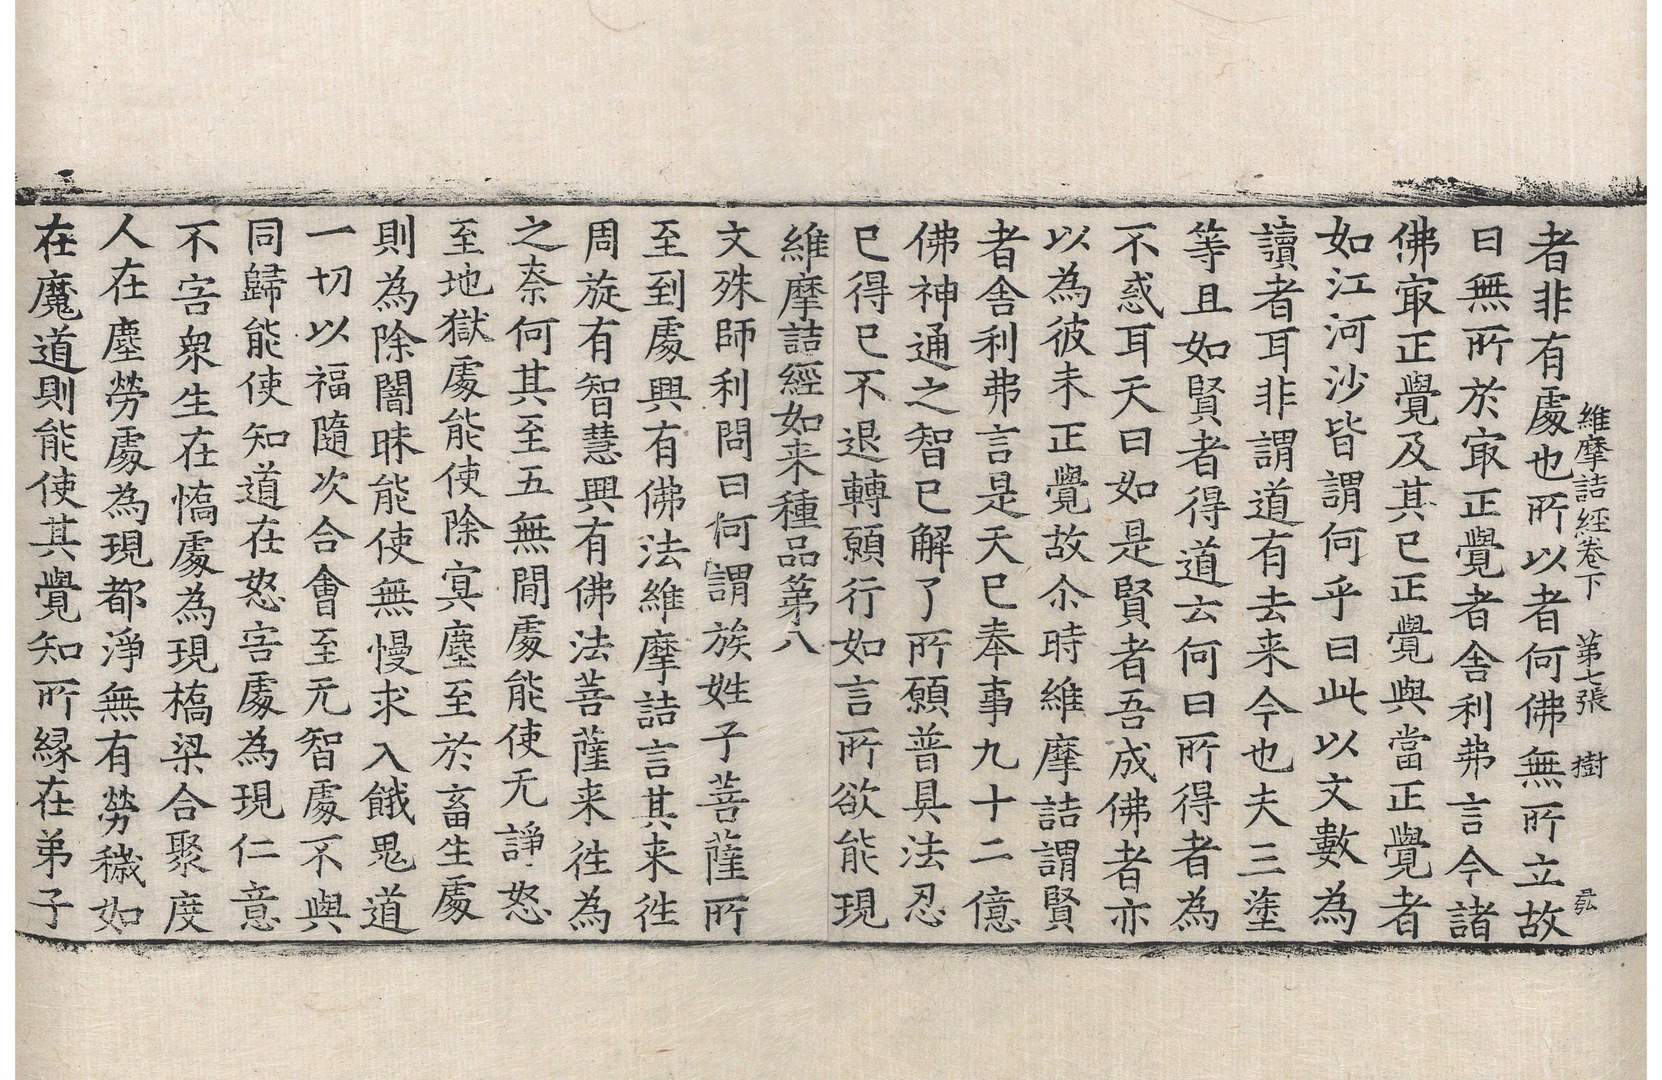 維摩詰經卷下　第七張　樹　弘
者非有處也所以者何佛無所立故
曰無所於㝡正覺者舍利弗言今諸
佛㝡正覺及其已正覺與當正覺者
如江河沙皆謂何乎曰此以文數為
讀者耳非謂道有去来今也夫三塗
等且如賢者得道云何曰所得者為
不惑耳天曰如是賢者吾成佛者亦
以為彼未正覺故尒時維摩詰謂賢
者舍利弗言是天已奉事九十二億
佛神通之智已解了所願普具法忍
已得已不退轉願行如言所欲能現
維摩詰經如来種品第八
文殊師利問曰何謂族姓子菩薩所
至到處興有佛法維摩詰言其来往
周旋有智慧興有佛法菩薩来往為
之柰何其至五無間處能使无諍怒
至地獄處能使除㝠塵至於畜生處
則為除闇昧能使無慢求入餓鬼道
一切以福隨次合會至无智處不與
同歸能使知道在怒害處為現仁意
不害衆生在憍處為現橋梁合聚度
人在塵勞處為現都淨無有勞穢如
在魔道則能使其覺知所縁在弟子